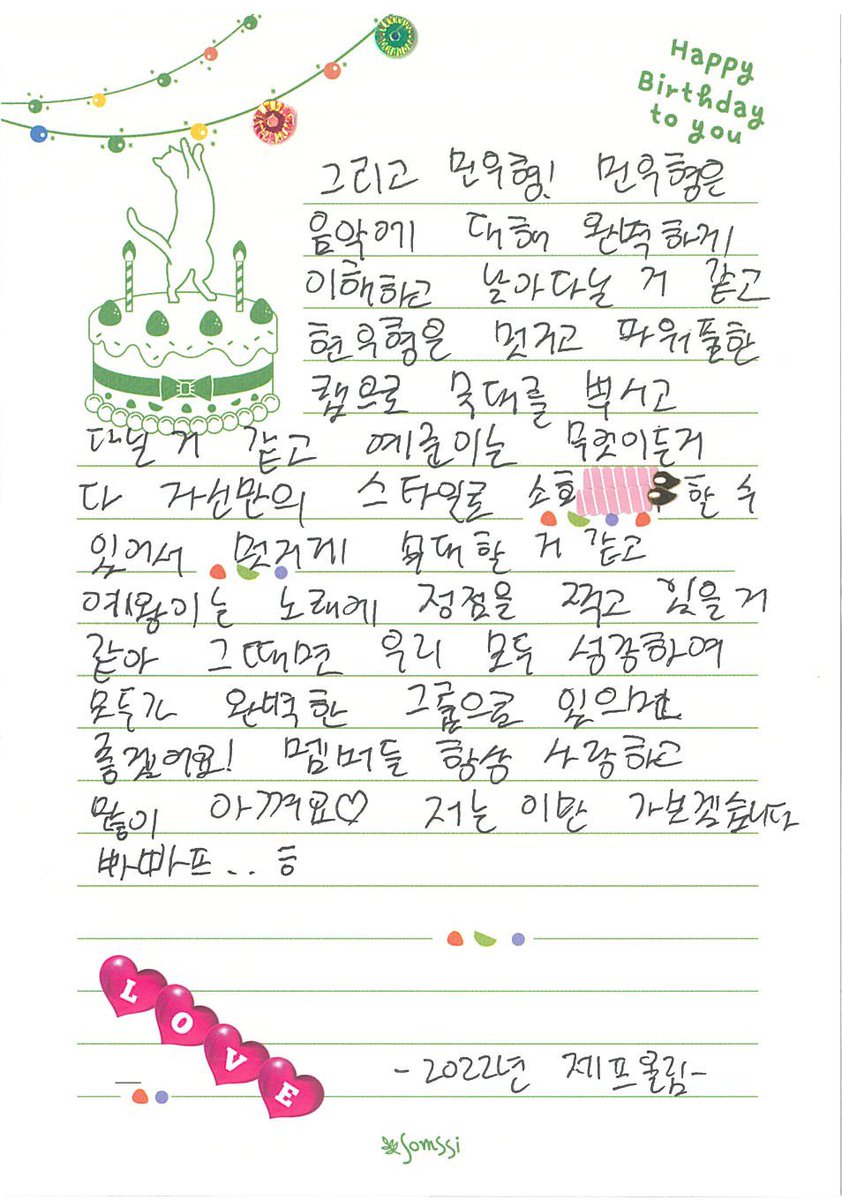 Happy
Birthday
to you
그리고 민우형! 민우형은
음악에 대해 완벽하게
이해하고 날아다닐 거 같고
현우형은 멋지고 파워풀한
랩으로 무대를 뿌시고
다닐 거 같고 예준이는 무엇이든지
다 자신만의 스타일로 소화 할 수
있어서 멋지게 무대할 거 같고
예왕이는 노래에 정점을 찍고 있을 거
같아 그때면 우리 모두 성장하여
모두가 완벽한 그룹으로 있으면
좋겠어요! 멤버들 항상 사랑하고
많이 아껴요♡ 저는 이만 가보겠습니다
빠빠프.. ㅎ
LOVE
-2022년 제프올림-
Somssi